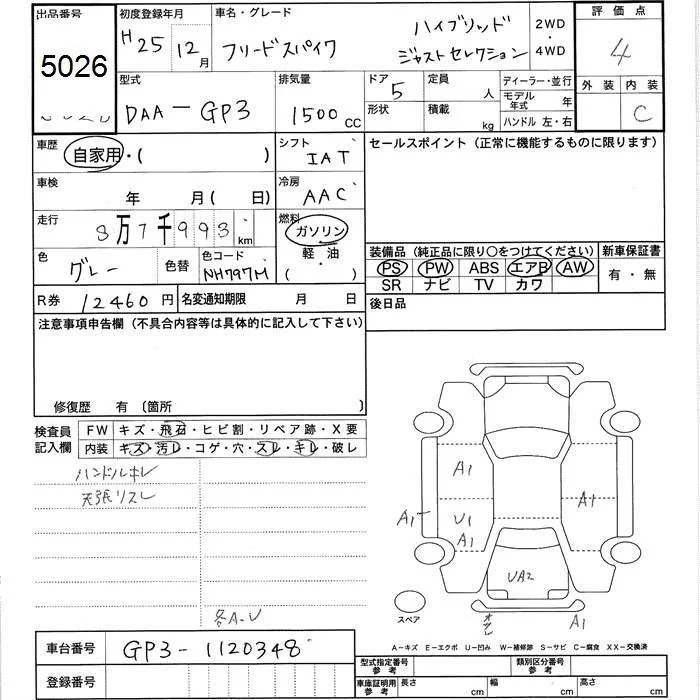 出品番号 初度登録年月 車名・グレード 評価点
5026 H25 12月 フリードスパイク ハイブリッド ジャストセレクション 2WD・4WD 4
型式 排気量 ドア 定員 ディーラー・並行 外装 内装
DAA-GP3 1500CC 5 人 モデル年式 年 C
形状 積載 kg ハンドル 左・右
車歴 自家用・( ) シフト IAT セールスポイント (正常に機能するものに限ります)
車検 年 月 ( 日) 冷房 AAC
走行 8万7千993km 燃料 ガソリン 軽・油 ( )
色 グレー 色替 色コード NH797M
装備品 (純正品に限り○をつけてください) 新車保証書
PS PW ABS エアB AW 有・無
SR ナビ TV カワ
R券 12460円 名変通知期限 月 日 後日品
注意事項申告欄 (不具合内容等は具体的に記入して下さい)
修復歴 有 〔箇所 〕
検査員記入欄 FW キズ・飛石・ヒビ割・リペア跡・X要
内装 キズ・汚レ・コゲ・穴・スレ・キレ・破レ
ハンドルキレ
天張リスレ
A1
A1 U1 A1
A1
UA2
各A・U
スペア A1
A-キズ E-エクボ U-凹み W-補修跡 S-サビ C-腐食 XX-交換済
車台番号 GP3-1120348
型式指定番号 参考 類別区分番号 参考
登録番号
車庫証明用 参考 長さ cm 幅 cm 高さ cm